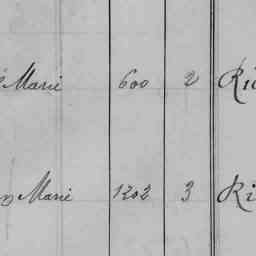 Marie 600 2 Ri
Marie 1202 3 Ri